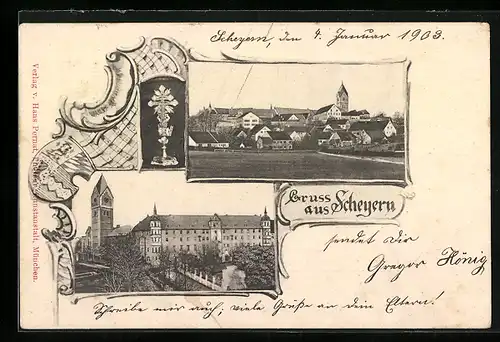 Scheyern, den 4. Januar 1903.
Gruss
aus Scheyern
sendet Dir
Gregor König
Schreibe mir auch; viele Grüße an dein Eltern!
Verlag v. Hans Pernat, Kunstanstalt, München.